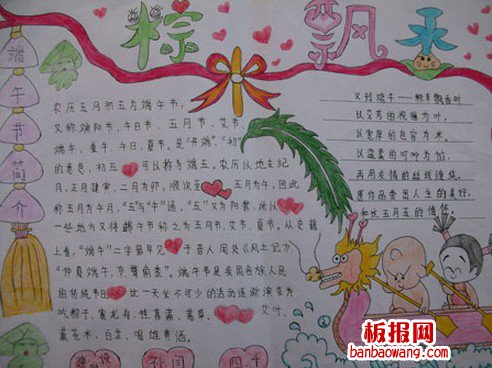 粽飘香
端午节简介
农历五月初五为端午节,
又称端阳节、午日节、五月节、艾节、
端午、重午、午日、夏节,是"开端"、"初"
的意思,初五可以称为端五。农历以地支纪
月,正月建寅,二月为卯,顺次至五月为午,因此
称五月为午月,"五"与"午"通,"五"又为阳数,所以
一些地方又将端午节称之为五月节、艾节、夏节。从史籍
上看,"端午"二字最早见于晋人周处《风土记》
"仲夏端午,烹鹜角黍"。端午节是我国各族人民
由传统节日比一天必不可少的活动逐渐演变为
吃粽子,赛龙舟,挂菖蒲、蒿草、艾叶,
薰苍术、白芷,喝雄黄酒。
又到端午——粽香飘香时
以芬芳的祝福为叶,
以宽厚的包容为米,
以温柔的叮咛为馅,
再用友情的丝线缠绕,
愿你品尝出人生的美好,
和优五月五的情怀
板报网
banbaowang.com